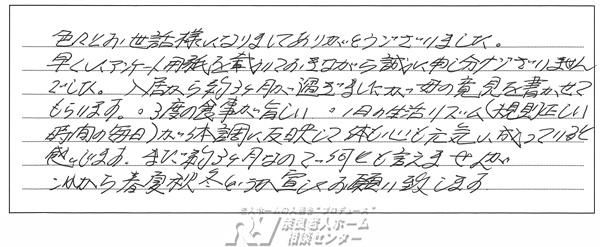 色々とお世話様になりましてありがとうございました。
早くにアンケート用紙を戴いておきながら誠に申し分けございません
でした。入居から約3ヶ月が過ぎましたが母の意見を書かせて
もらいます。○3度の食事が旨しい ○1日の生活リズム(規則正しい
時間の毎日)が体調に反映して体も心も元気に成っていると
感じます。まだ約3ヶ月なので何とも言えませんが
これから春夏秋冬と宜しくお願い致します
老人ホームの入居を"プロデュース"
奈良老人ホーム
相談センター